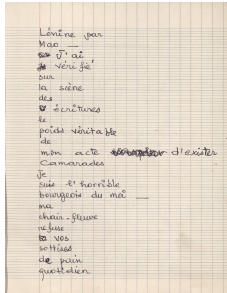 Lénine par
Mao —
J'ai
vérifié
sur
la scène
des
écritures
le
poids véritable
de
mon acte d'exister
Camarades
Je
suis l'horrible
bourgeois du moi —
ma
chair-fleuve
refuse
vos
sottises
de pain
quotidien